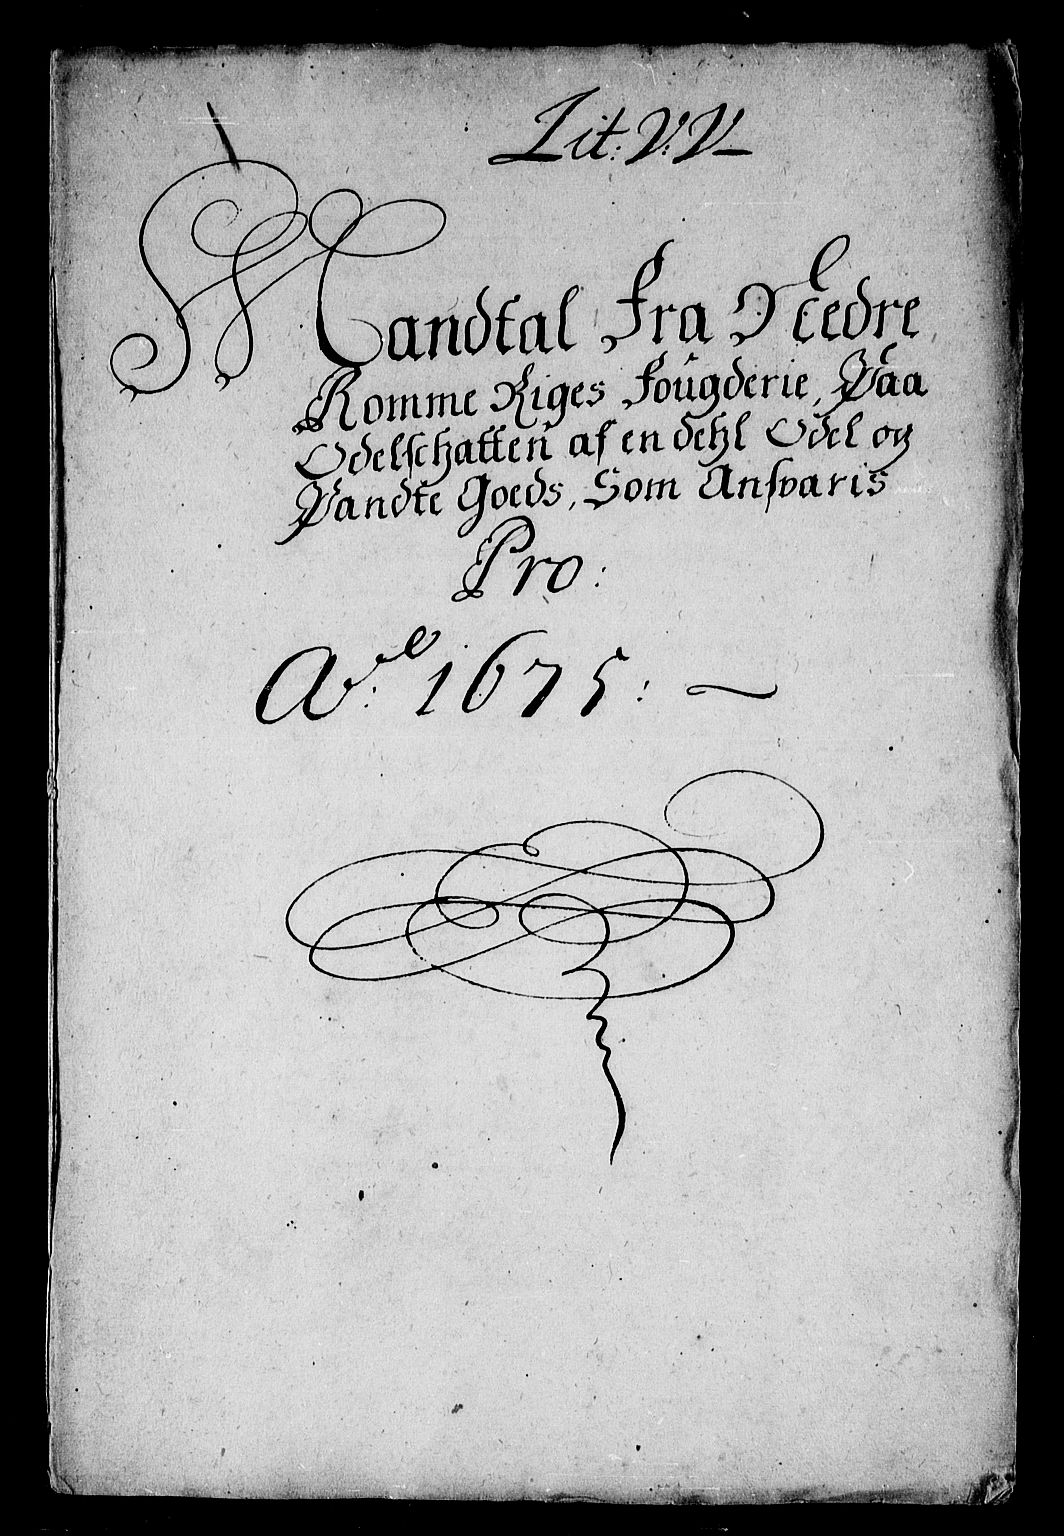 Lit: V: V
Mandtal Fra Needre
Romme Riges Fougderie, Paa
Odelschatten af en dehl Odel og
Pandte Goeds, Som Ansvaris
Pro:
Ao: 1675: —